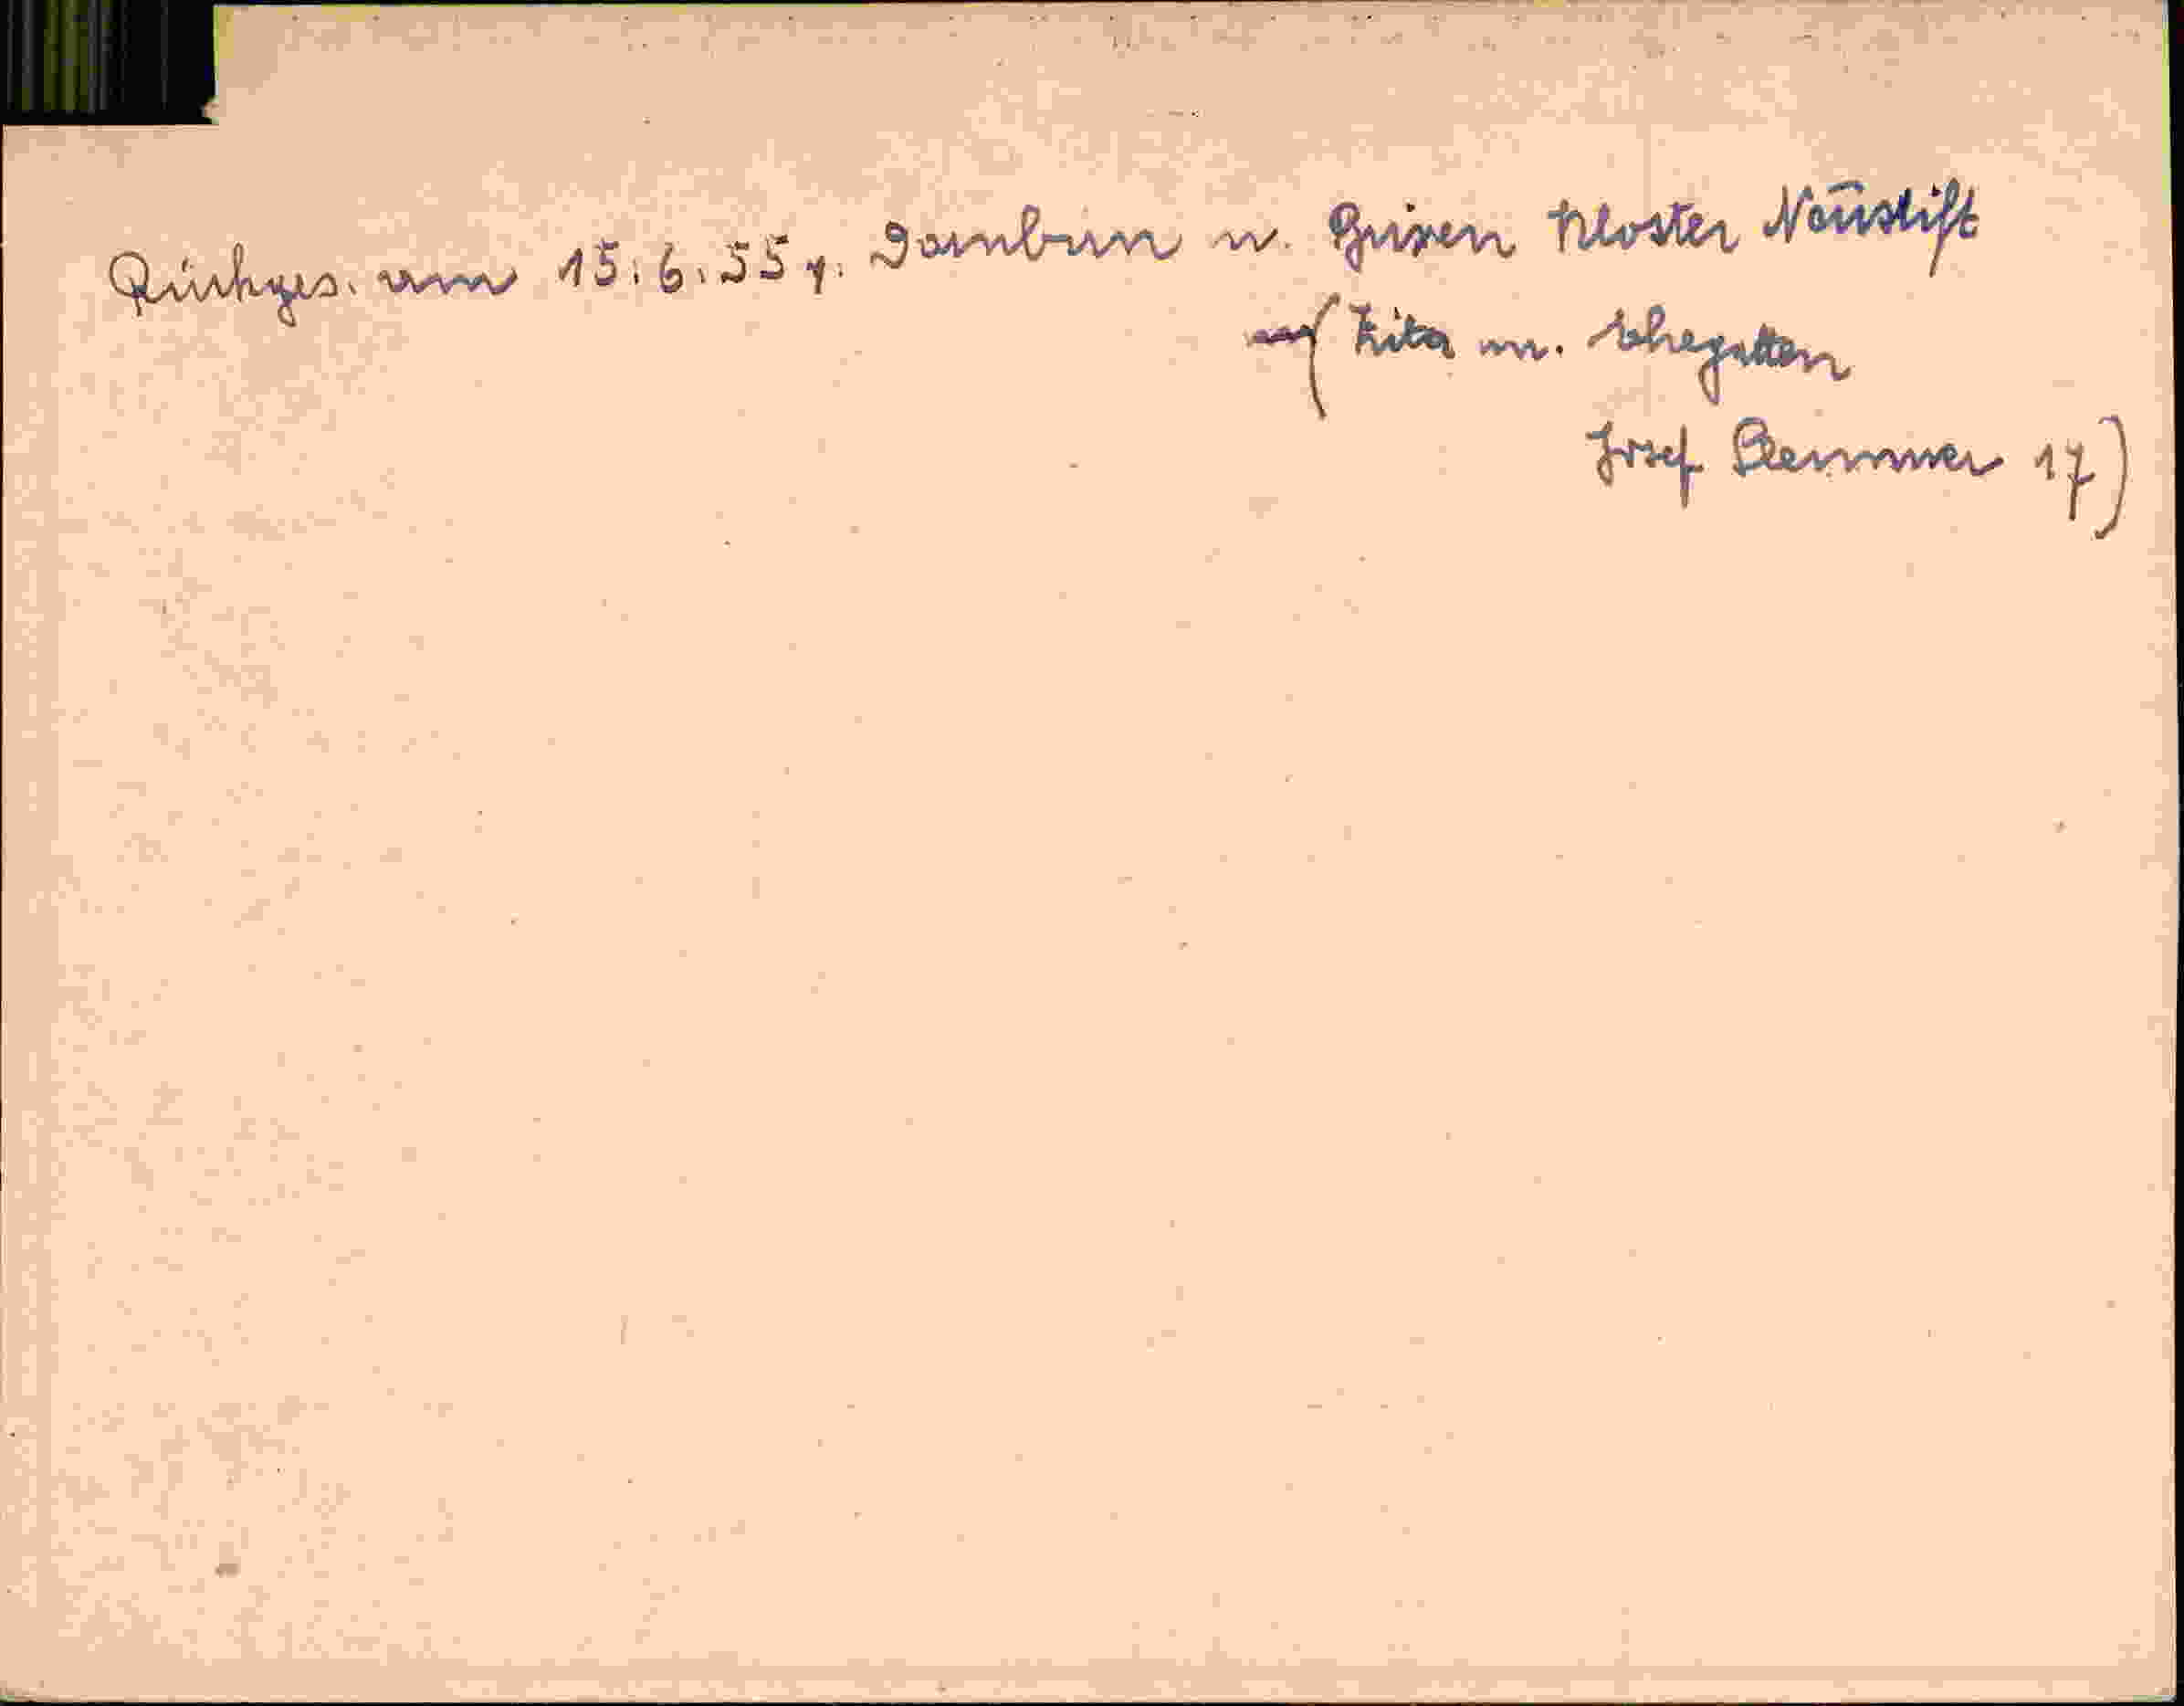 Rückges. am 15.6.55 v. Dornbirn n. Brixen Kloster Neustift
(Zita m. Ehegatten
Josef Remmer 17)